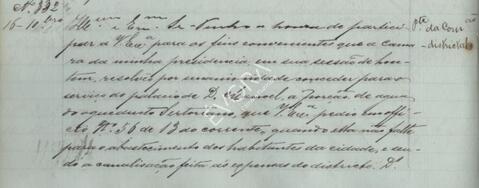 Nº 332
15-10-bro
Illmo. e Exmo. Sr. Tenho a honra de partici
par a V. Exa. para os fins convenientes que a cama
ra da minha presidencia, em sua sessão de hon
tem, resolveu por unanimidade conceder para o
serviço do palacio de D. Manoel, a porção de agua
do aqueducto Sertoriano, que V. Exa. pedio em offi
cio Nº 56 de 13 do corrente, quando ella não falte
para o abastecimento dos habitantes da cidade, e sen
do a canalisação feita ás expensas do districto. Ds.
Pte. da Comão
districtal